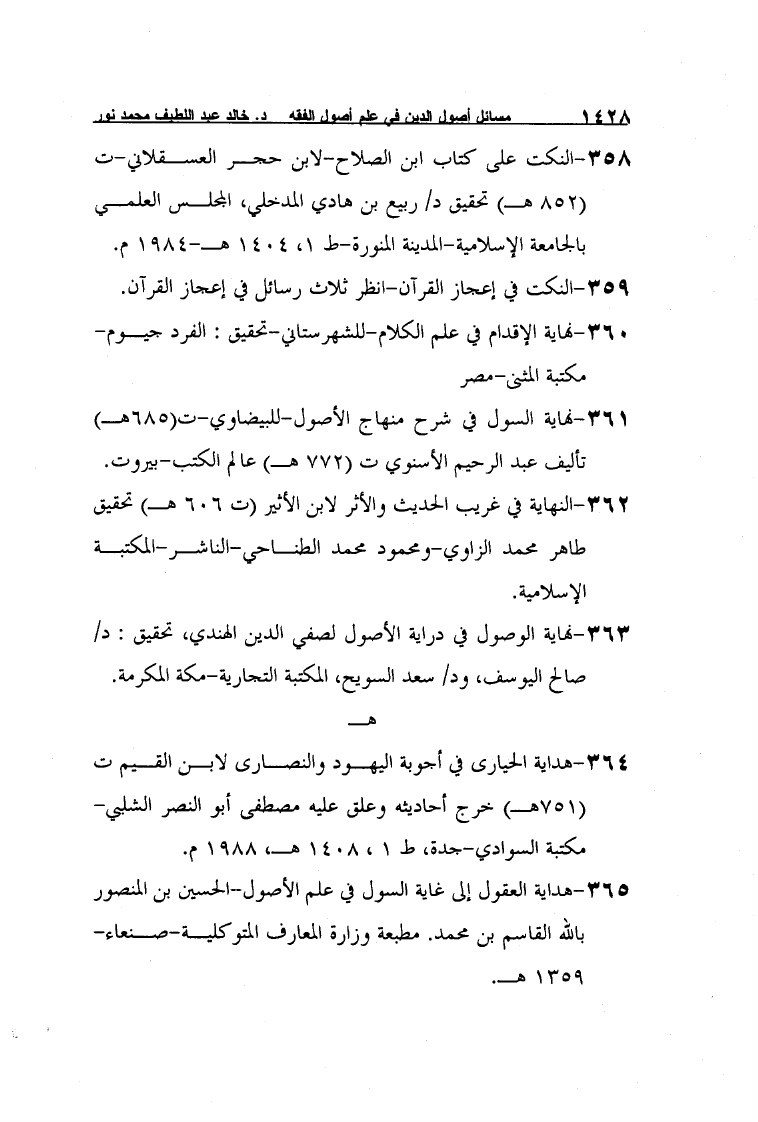 ١٤٢٨ مسائل أصول الدين في علم أصول الفقه د. خالد عبد اللطيف محمد نور
٣٥٨-النكت على كتاب ابن الصلاح-لابن حجـر العسـقلاني-ت
(٨٥٢ هـ) تحقيق د/ ربيع بن هادي المدخلي، المجلـس العلمـي
بالجامعة الإسلامية-المدينة المنورة-ط ١، ١٤٠٤ هـ-١٩٨٤ م.
٣٥٩-النكت في إعجاز القرآن-انظر ثلاث رسائل في إعجاز القرآن.
٣٦٠-نهاية الإقدام في علم الكلام-للشهرستاني-تحقيق : الفرد جيـوم-
مكتبة المثنى-مصر
٣٦١-نهاية السول في شرح منهاج الأصول-للبيضاوي-ت(٦٨٥هـ)
تأليف عبد الرحيم الأسنوي ت (٧٧٢ هـ) عالم الكتب-بيروت.
٣٦٢-النهاية في غريب الحديث والأثر لابن الأثير (ت ٦٠٦ هـ) تحقيق
طاهر محمد الزاوي-ومحمود محمد الطنـاحي-الناشـر-المكتبـة
الإسلامية.
٣٦٣-نهاية الوصول في دراية الأصول لصفي الدين الهندي، تحقيق : د/
صالح اليوسف، ود/ سعد السويح، المكتبة التجارية-مكة المكرمة.
هـ
٣٦٤-هداية الحيارى في أجوبة اليهـود والنصـارى لابـن القـيم ت
(٧٥١هـ) خرج أحاديثه وعلق عليه مصطفى أبو النصر الشلبي-
مكتبة السوادي-جدة، ط ١ ، ١٤٠٨ هـ، ١٩٨٨ م.
٣٦٥-هداية العقول إلى غاية السول في علم الأصول-الحسين بن المنصور
بالله القاسم بن محمد. مطبعة وزارة المعارف المتوكليـة-صـنعاء-
١٣٥٩ هـ.